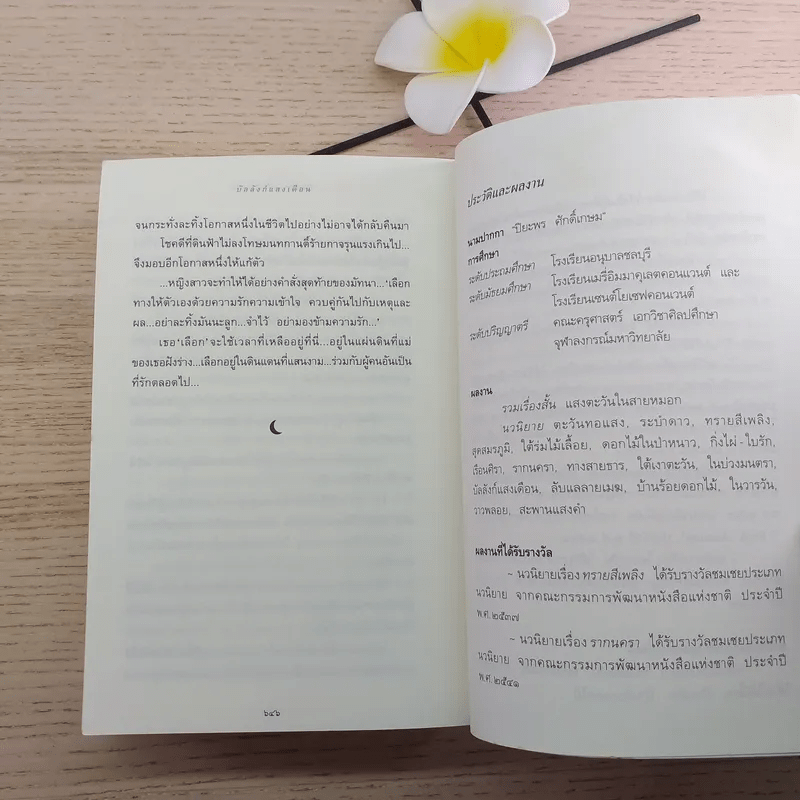 บัลลังก์แสงเดือน
จนกระทั่งละทิ้งโอกาสหนึ่งในชีวิตไปอย่างไม่อาจได้กลับคืนมา
โชคดีที่ดินฟ้าไม่ลงโทษมนทกานติ์ร้ายกาจรุนแรงเกินไป...
จึงมอบอีกโอกาสหนึ่งให้แก่ตัว
...หญิงสาวจะทำให้ได้อย่างคำสั่งสุดท้ายของมัทนา...‘เลือก
ทางให้ตัวเองด้วยความรักความเข้าใจ ควบคู่กันไปกับเหตุและ
ผล...อย่าละทิ้งมันนะลูก...จำไว้ อย่ามองข้ามความรัก...’
เธอ ‘เลือก’ จะใช้เวลาที่เหลืออยู่ที่นี่...อยู่ในแผ่นดินที่แม่
ของเธอฝังร่าง...เลือกอยู่ในดินแดนที่แสนงาม...ร่วมกับผู้คนอันเป็น
ที่รักตลอดไป...
๖๔๖
ประวัติและผลงาน
นามปากกา “ปิยะพร ศักดิ์เกษม”
การศึกษา
ระดับประถมศึกษา โรงเรียนอนุบาลชลบุรี
ระดับมัธยมศึกษา โรงเรียนเมรี่อิมมาคุเลตคอนแวนต์ และ
โรงเรียนเซนต์โยเซฟคอนเวนต์
ระดับปริญญาตรี คณะครุศาสตร์ เอกวิชาศิลปศึกษา
จุฬาลงกรณ์มหาวิทยาลัย
ผลงาน
รวมเรื่องสั้น แสงตะวันในสายหมอก
นวนิยาย ตะวันทอแสง, ระบำดาว, ทรายสีเพลิง,
สุดสมรภูมิ, ใต้ร่มไม้เลื้อย, ดอกไม้ในป่าหนาว, กิ่งไผ่-ใบรัก,
เรือนศิรา, รากนครา, ทางสายธาร, ใต้เงาตะวัน, ในบ่วงมนตรา,
บัลลังก์แสงเดือน, ลับแลลายเมฆ, บ้านร้อยดอกไม้, ในวารวัน,
วาวพลอย, สะพานแสงคำ
ผลงานที่ได้รับรางวัล
~ นวนิยายเรื่อง ทรายสีเพลิง ได้รับรางวัลชมเชยประเภท
นวนิยาย จากคณะกรรมการพัฒนาหนังสือแห่งชาติ ประจำปี
พ.ศ. ๒๕๓๗
~ นวนิยายเรื่อง รากนครา ได้รับรางวัลชมเชยประเภท
นวนิยาย จากคณะกรรมการพัฒนาหนังสือแห่งชาติ ประจำปี
พ.ศ ๒๕๔๑